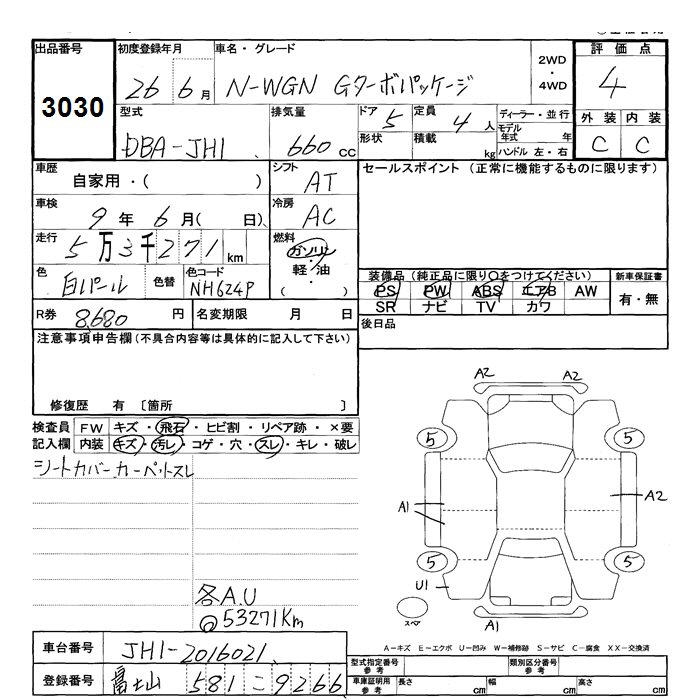 出品番号 初度登録年月 車名・グレード 2WD・4WD 評価点
3030 26 6月 N-WGN Gターボパッケージ 4
型式 排気量 ドア 5 定員 4人 ディーラー・並行 外装 内装
DBA-JH1 660cc 形状 積載 kg モデル年式 年 C C
ハンドル 左・右
車歴 自家用・( ) シフト AT セールスポイント (正常に機能するものに限ります)
車検 9年 6月( 日) 冷房 AC
走行 5万3千271km 燃料 ガソリン・軽油 ( )
色 白パール 色替 色コード NH624P 装備品 (純正品に限り○をつけてください) 新車保証書
PS PW ABS エアB AW 有・無
SR ナビ TV カワ
R券 8,680円 名変期限 月 日 後日品
注意事項申告欄 (不具合内容等は具体的に記入して下さい)
修復歴 有 〔箇所 〕
検査員 FW キズ・飛石・ヒビ割・リペア跡・×要
記入欄 内装 キズ・汚レ・コゲ・穴・スレ・キレ・破レ
シートカバー カーペットスレ
A2 A2
5 5
A1 A2
5 5
U1
スペア A1
各A.U
@53271Km
A-キズ E-エクボ U-凹み W-補修跡 S-サビ C-腐食 XX-交換済
車台番号 JH1-2016021
型式指定番号 参考 類別区分番号 参考
登録番号 富士山 581 こ 9266
車庫証明用 参考 長さ cm 幅 cm 高さ cm